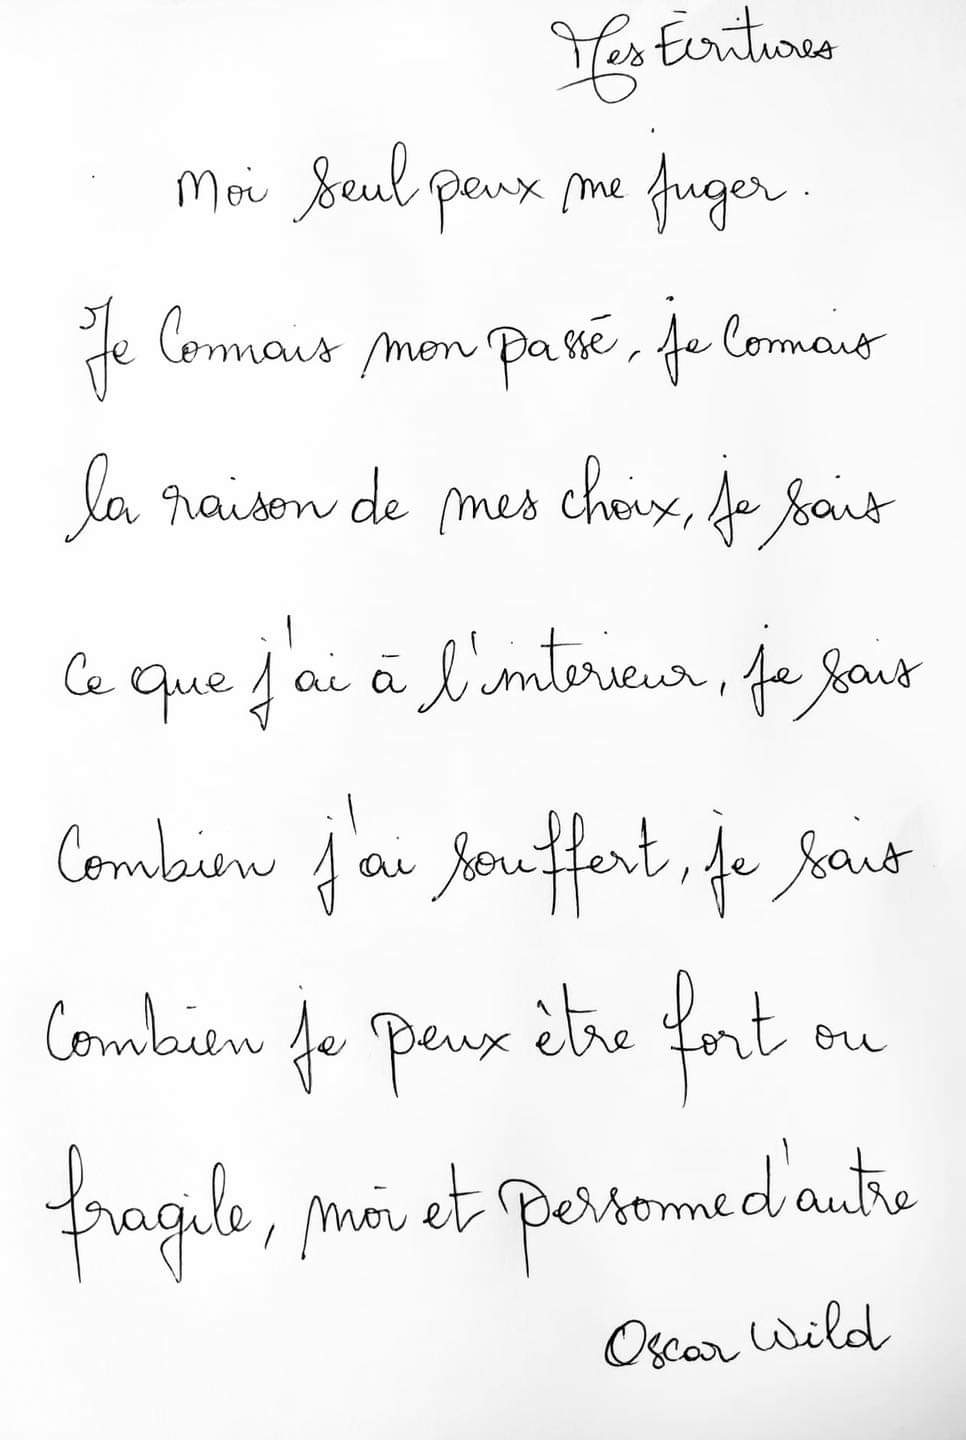 Mes Ecritures
Moi seul peux me juger.
Je Connais mon passé, je Connais
la raison de mes choix, je sais
Ce que j'ai à l'interieur, je sais
Combien j'ai souffert, je sais
Combien je peux être fort ou
fragile, moi et personne d'autre
Oscar Wild